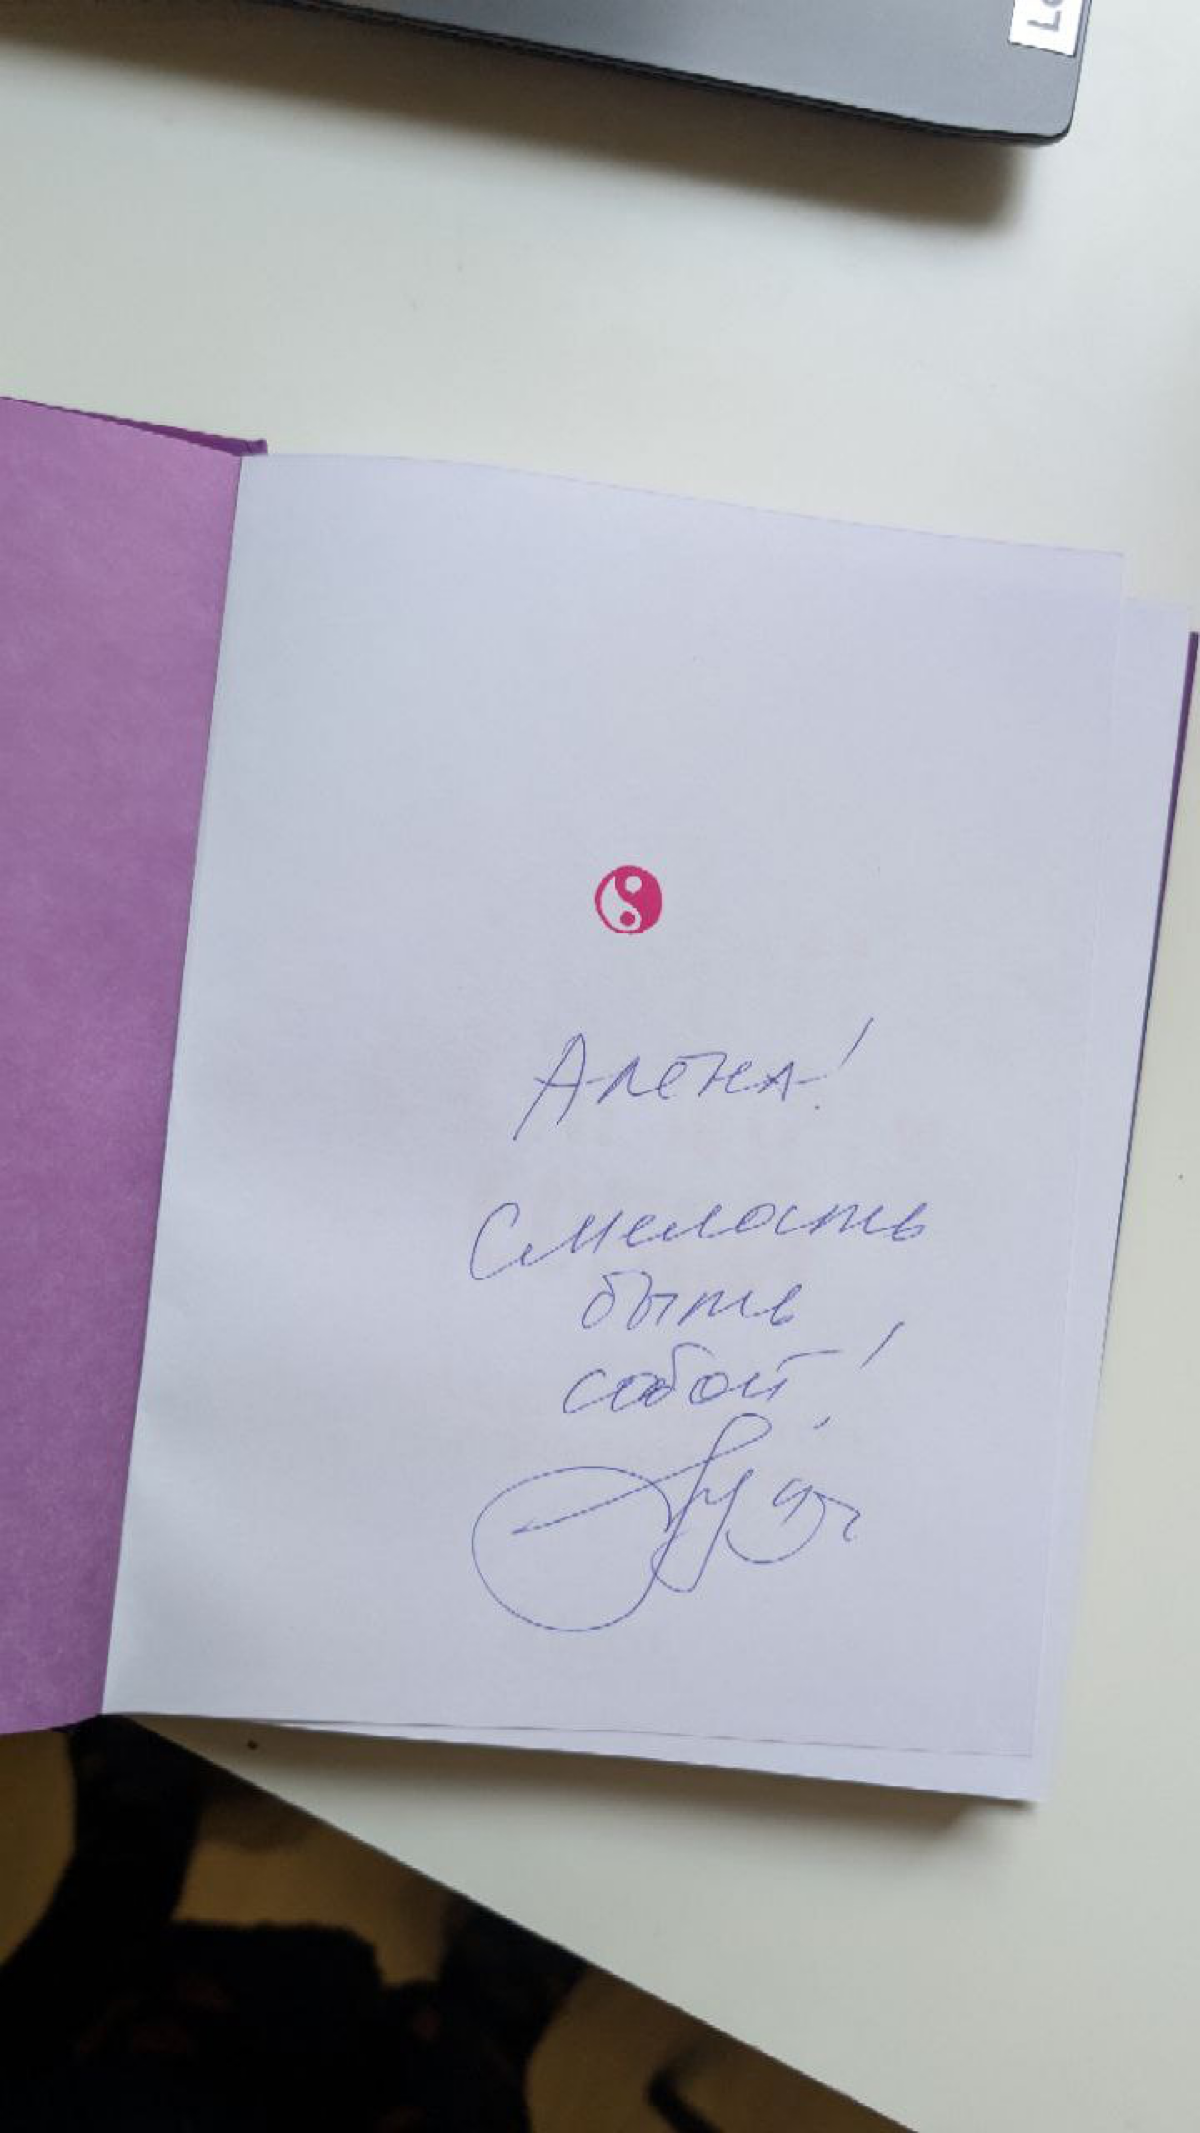 Алёна!
Смелость
быть
собой!